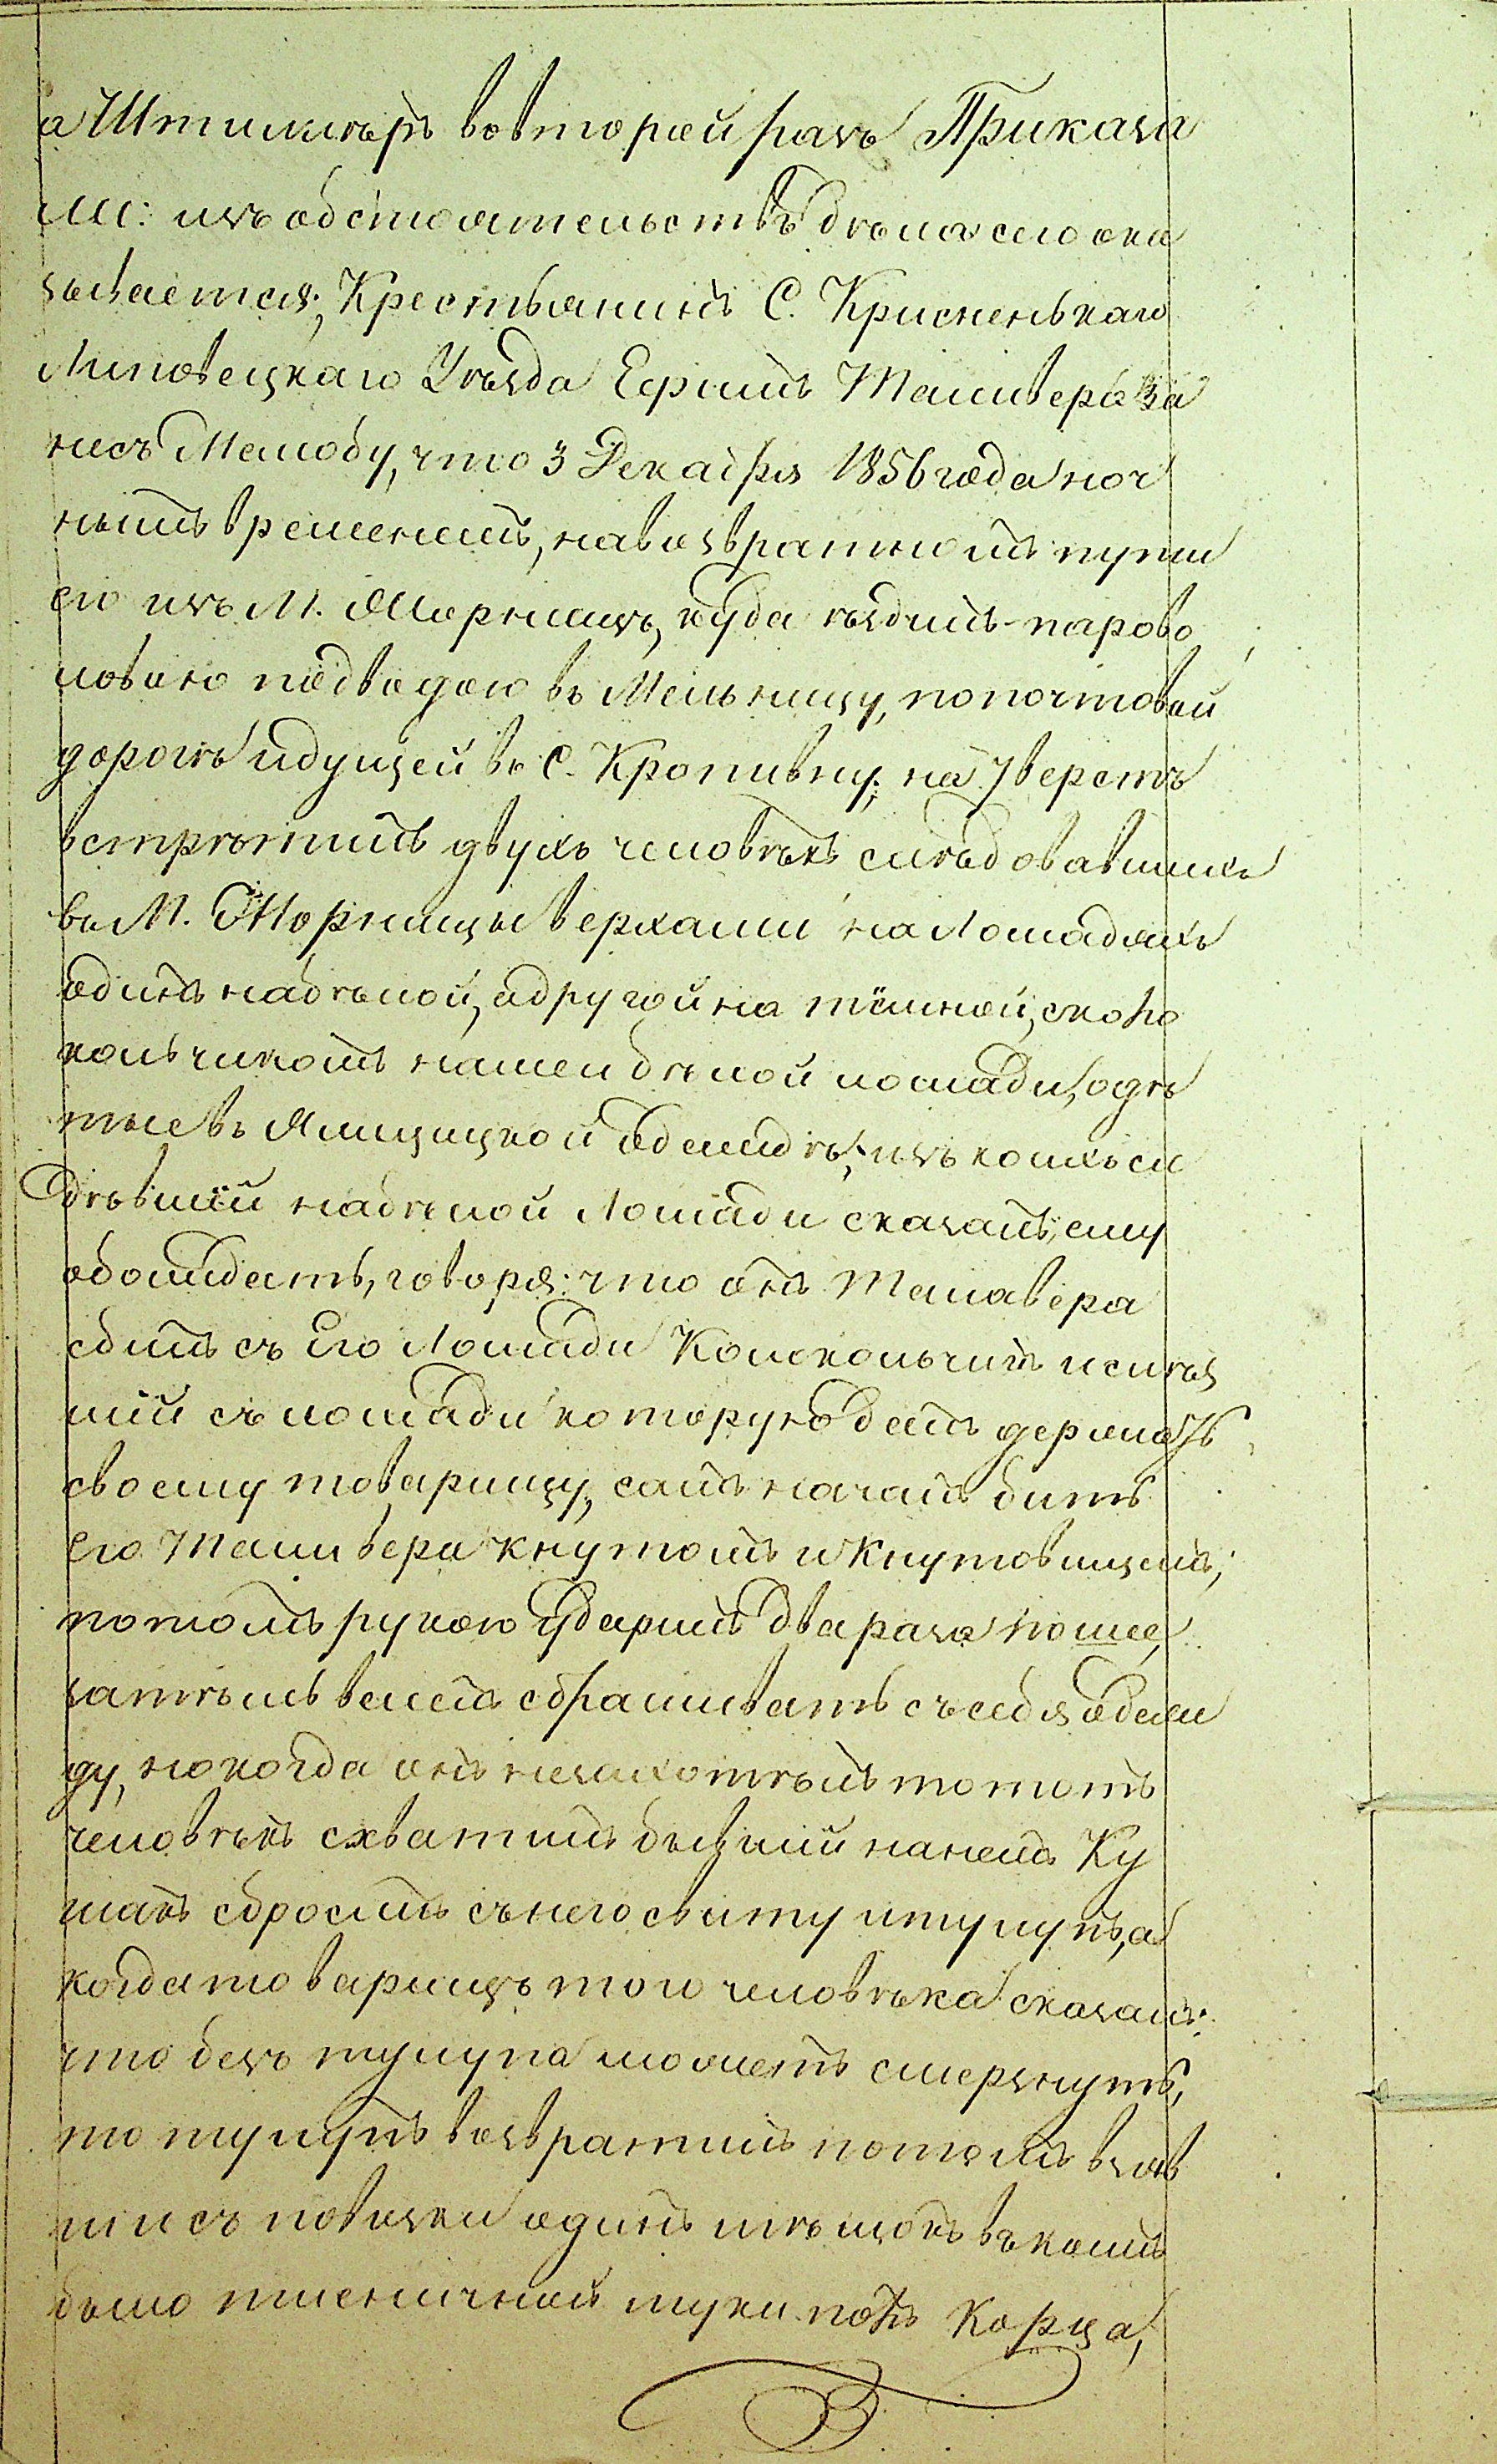 а Штиллеръ во второй разъ Приказа
ли: изъ обстоятельствъ дѣла сего ока
зывается; Крестьянинъ С. Крисненькаго
Липовецкаго Уѣзда Ефимъ Таливера за
несъ Жалобу, что 3 Декабря 1856 года ноч
нымъ временемъ, на возвратномъ пути
его изъ М. Жорнищъ, куда ѣздилъ парово
ловою подводою въ Мельницу, по почтовой
дорогѣ идущей в С. Кропивну; на 7 верстѣ
встрѣтилъ двухъ человѣкъ слѣдовавшихъ
въ М. Жорнищы верхами на Лошадяхъ
одинъ на бѣлой, а другой на тёмной, с коло
кольчикомъ на шеи бѣлой лошади, одѣ
тые въ Ямщицкой одеждѣ, изъ коихъ си
дѣвшій на бѣлой Лошади сказалъ, ему
обождать, говоря: что онъ Таливера
сбилъ съ его Лошади Колокольчикъ и слѣз
шій съ лошади которую далъ держать
своему товарищу, самъ началъ бить
его Таливера кнутомъ и Кнутовищемъ;
потомъ рукою ударилъ два раза по шее,
затѣмъ велелъ сбрасивать съ себя одеж
ду, но когда онъ незахотѣлъ то тотъ
человѣкъ схватилъ бывшій на немъ Ку
шакъ сбросилъ съ него свиту и тулупъ, а
когда товарищъ того человѣка сказалъ:
что безъ тулупа можетъ смерзнуть,
то тулупъ возвратилъ потомъ взяв
ши съ повозки одинъ мѣшокъ въ коемъ
было пшеничной муки полъ Корца,